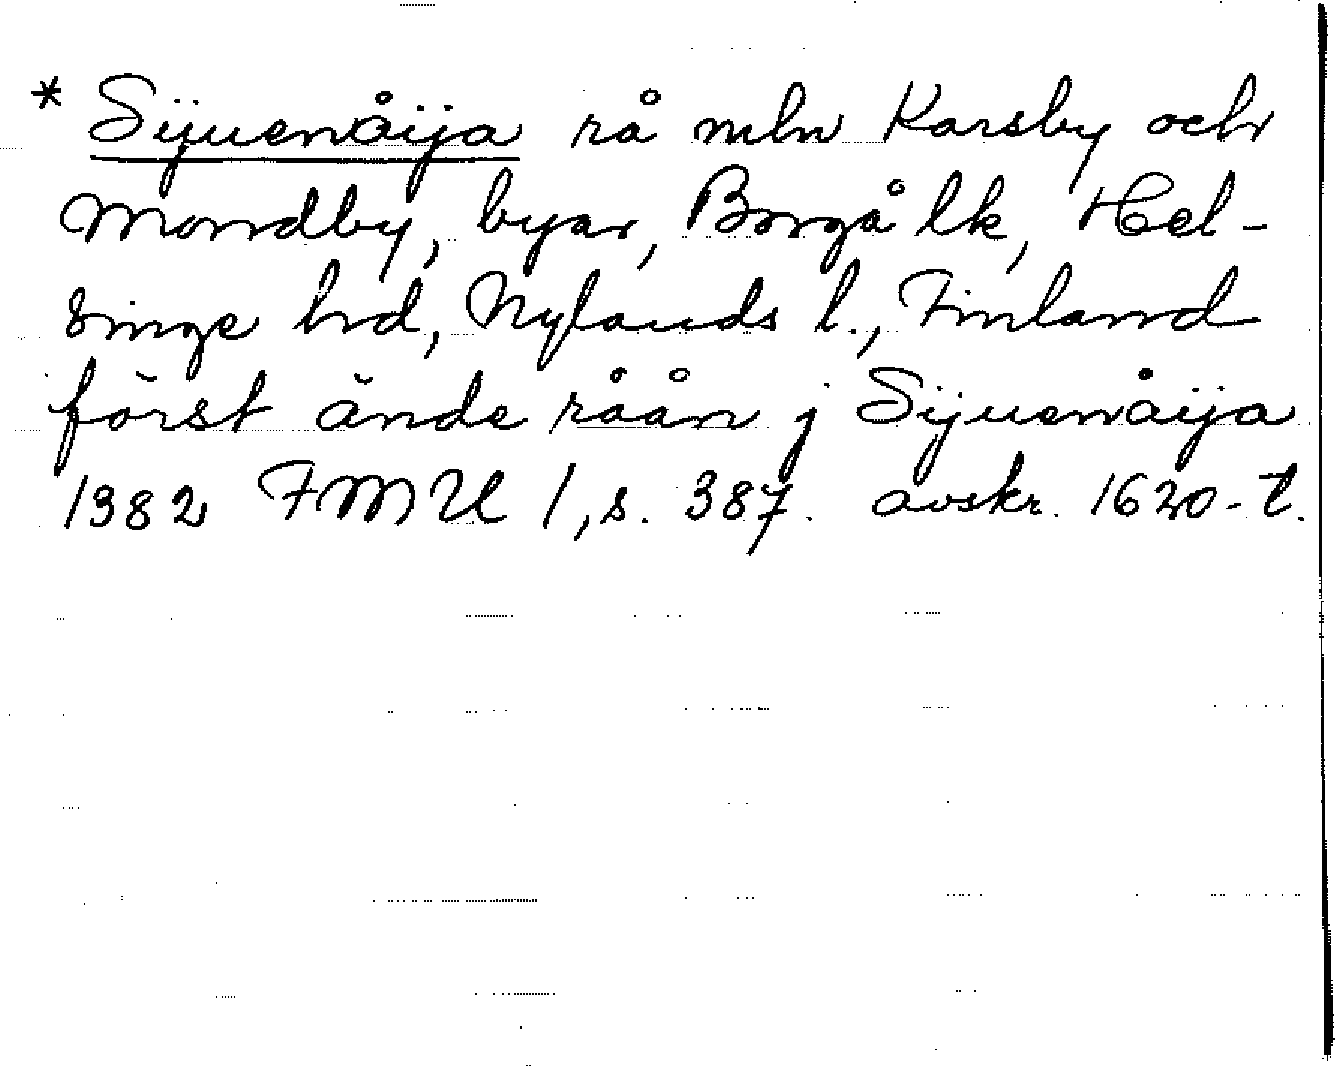 * Sijuenåija rå mln Karsby och
Mondby, byar, Borgå lk, Hel-
singe hd, Nylands l., Finland
först ände råån j Sijuenåija
1382 FMU 1, s. 387. avskr. 1620-t.